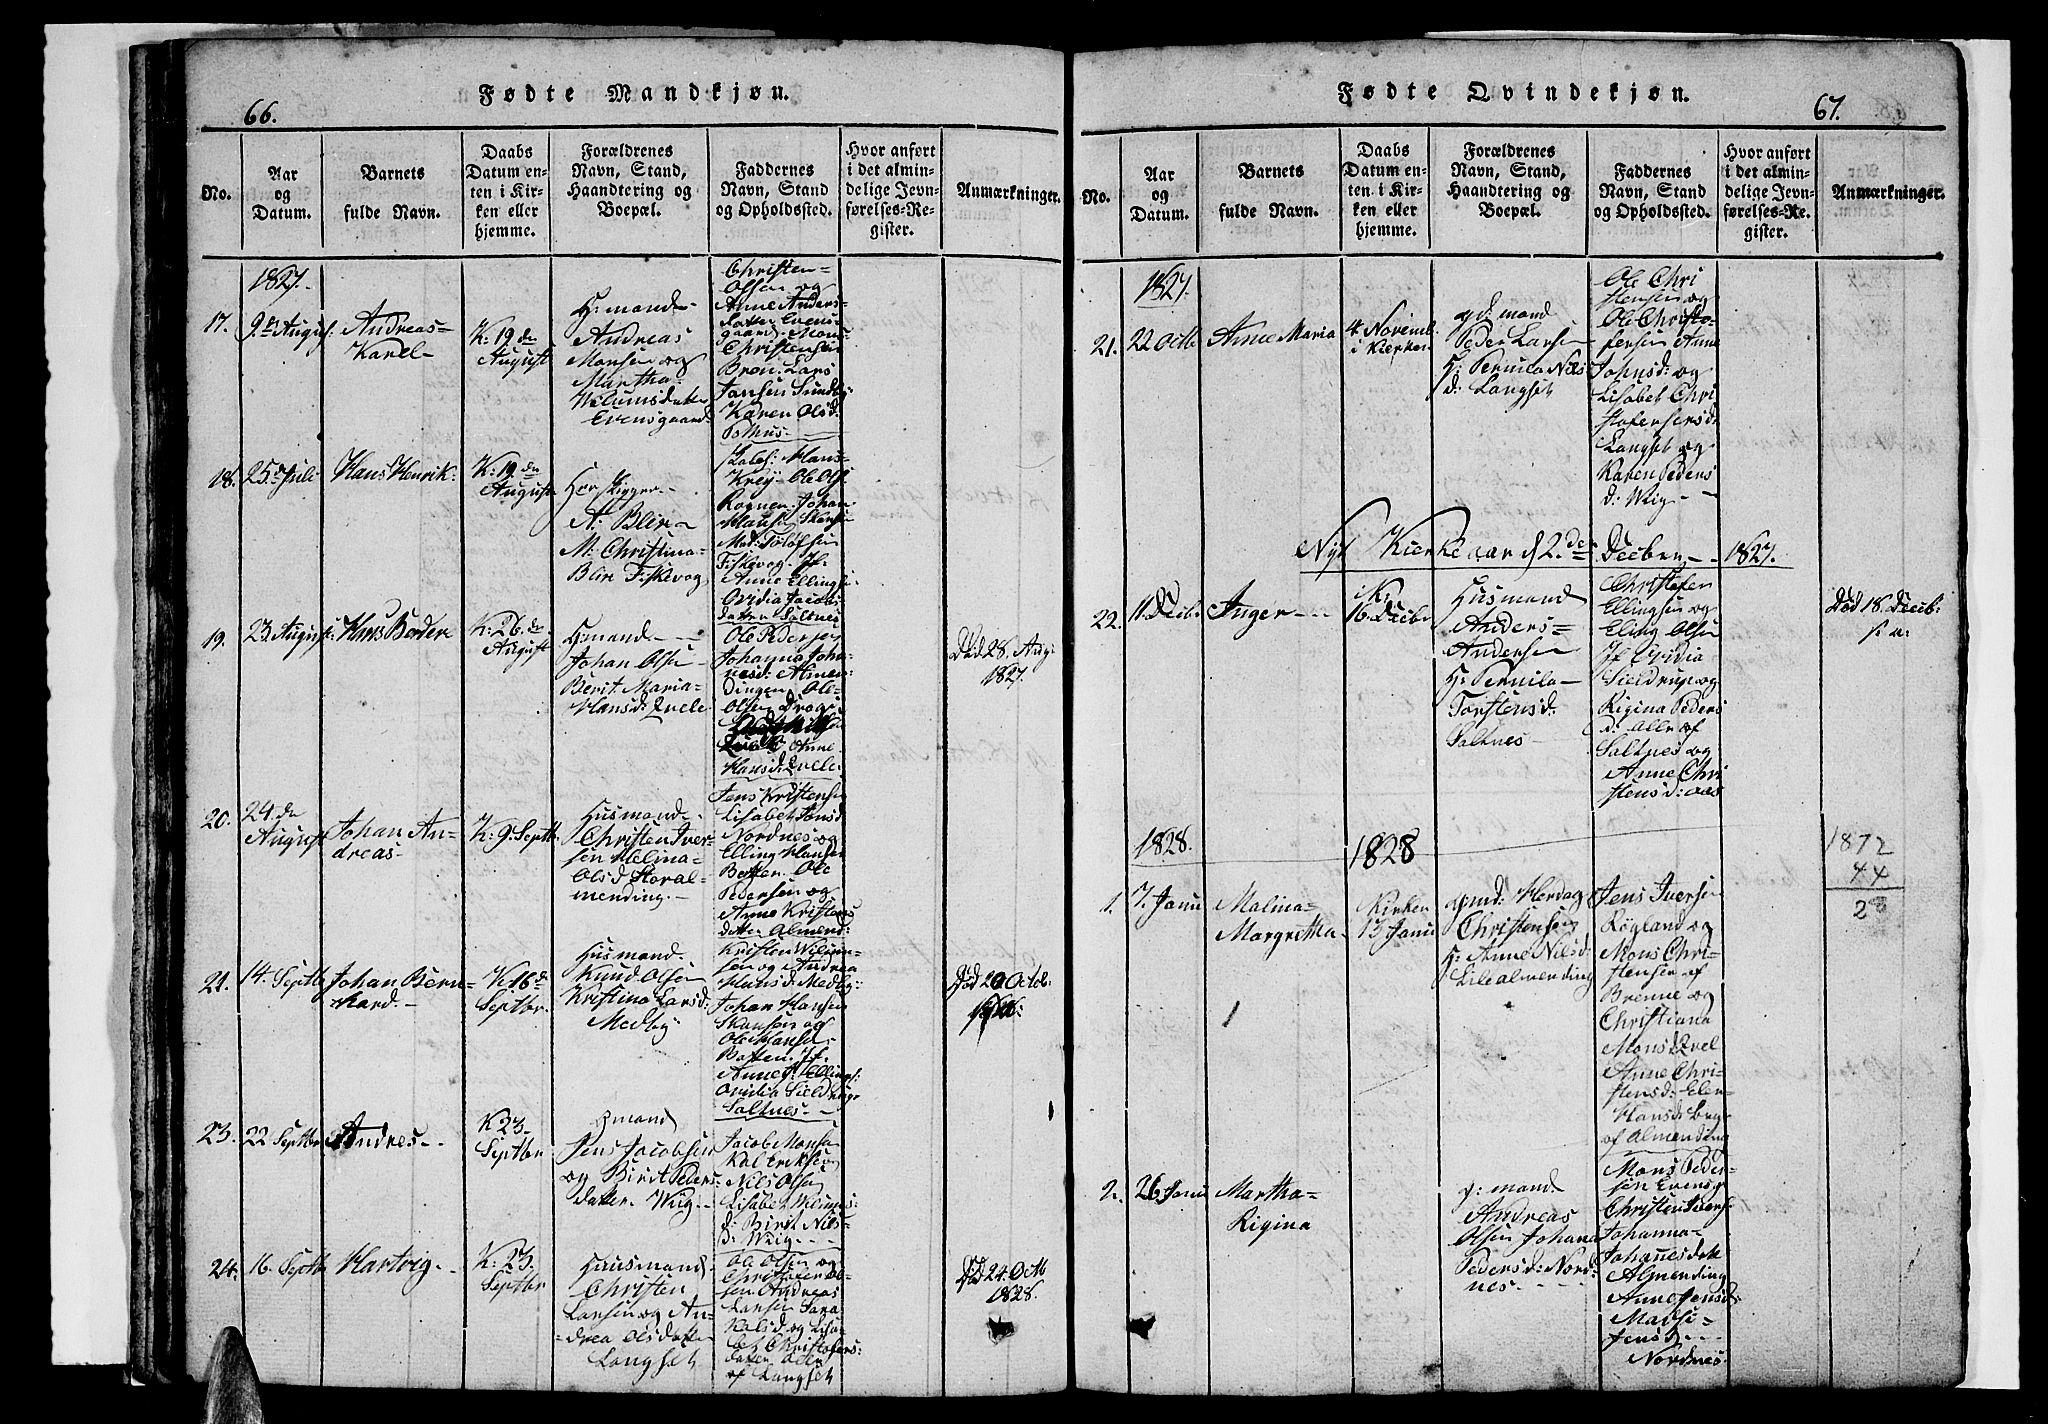 66.
Fødte Mandkjøn.
No.
Aar
og
Datum.
Barnets
fulde Navn.
Daabs
Datum en-
ten i Kir-
ken eller
hjemme.
Forældrenes
Navn, Stand,
Haandtering og
Boepæl.
Faddernes
Navn, Stand
og Opholdssted.
Hvor anført
i det almin-
delige Jevn-
førelses-Re-
gister.
Anmærkninger.
1827.
17.
9de August
Andreas
Karel
K: 19de
August
H: mand
Andreas
Monsen og
Martha
Evensgaard
Christen
Olsen og
Anne Anders
datter Evens
gaard Mons
Christensen
Bren. Lars
Jansen
Karen Olsd.
18.
25de Juli
Hans Henrik
K: 19de
August
A: Blix
M: Christina
Blix Fiskevog
Hans
Krey Ole Ols
Rognen Johan
Hansen
Fiskevog Jf.
Anne Ellings
Ovidia Jacobs
datter Saltnes
19.
23 August
Hans Beder
K: 26de
August
H: mand
Johan Olse
Berit Maria
Hansd: Qvele
Ole Pedersen
Johanna Joha
nesd: Almen
dingen Ole
Olsen
Anne
Hansd: Qvele
Død 28. Aug
1827.
20.
24de
August
Johan An-
dreas
K: 9. Septbr
Husmand
Christen Iver
sen Melina
Olsd Storal
mending.
Jens Kristensen
Lisabet Jonsd
Nordnes og
Elling Hansen
Botten Ole
Pedersen og
Anne Kristens
datter Almend:
21.
14. Septbr
Johan Bern-
hard
K 16de
Septbr.
Husmand
Knud Olsen
Kristina Larsd:
Medby
Kristen Wilum-
sen og Andrea
Hansd: Medby
Johan Hansen
Skansen og
Ole Hansd
Botten. Jf.
Anne Ellings:
Ovidia Sieldrup
Saltnes
Død 20 Octob:
23.
22 Septbr
Andres
K 23
Septbr
Gmand
Jens Jacobsen
og Birit Peders
datter Wiig
Jacob Monsen
Kal Eriksen
Nils Olsen
Lisabet Wilums
d: Birit Nils-
d: Wiig
24.
16. Septbr
Hartvig
K: 23.
Septbr
Huusmand
Christen
Larsen og An-
drea Olsdatter
Langset
Ole Olsen og
Christofer Ol-
sen Andreas
Larsen Sara
Kalsd og Lisa-
bet Christofers:
datter
af Langset
Død 24. Octb
1828.
67.
Fødte Qvindekjøn.
No.
Aar
og
Datum.
Barnets
fulde Navn.
Daabs
Datum en-
ten i Kir-
ken eller
hjemme.
Forældrenes
Navn, Stand,
Haandtering og
Boepæl.
Faddernes
Navn, Stand
og Opholdssted.
Hvor anført
i det almin-
delige Jevn-
førelses-Re-
gister.
Anmærkninger.
1827.
21.
22 Octb
Anne Maria
4. Novemb.
i Kierken
gd: mand
Peder Larsen
H: Pernila Nils
d: Langset
Ole Chri
stensen og
Ole Christo-
fersen Anne
Johnsd: og
Lisabet Chri
stofersensd:
Langset og
Karen Peders
d: Wiig
Nye Kierke aar d 2.de Decbr 1827.
22.
11. Decbr
Inger
i Kn
16. Decbr
Husmand
Anders
Andersen
H: Pernila
Torstensd:
Saltnes
Christofer
Ellingsen og
Eling Olsen
Jf. Ovidia
Sieldrup og
Rigina Peders
d: alle af
Saltnes og
Anne Chri
stensd: aas
Død 18. Decb:
s. a:
1828.
1828
1.
7. Janu
Malina
Margretha
Kirken
13 Janu
gmd: Herdag
Christensen
H: Anne Nilsd:
Lile almending
Jens Iversen
Røgland og
Mons Chri-
stensen af
Brenne og
Christiana
Monsd Qvel
Anne Chri-
stensd: Elen
Hansd:
af Almending
1872
44
2
2.
26 Janu
Martha
Rigina
g: mand
Andreas
Olsen Johana
Pedersd: Nord-
nes
Mons Peder-
sen Evensg
Christen Ivers
Johanna
Johanesdatt
Almending
Anne Jensd:
Nordnes